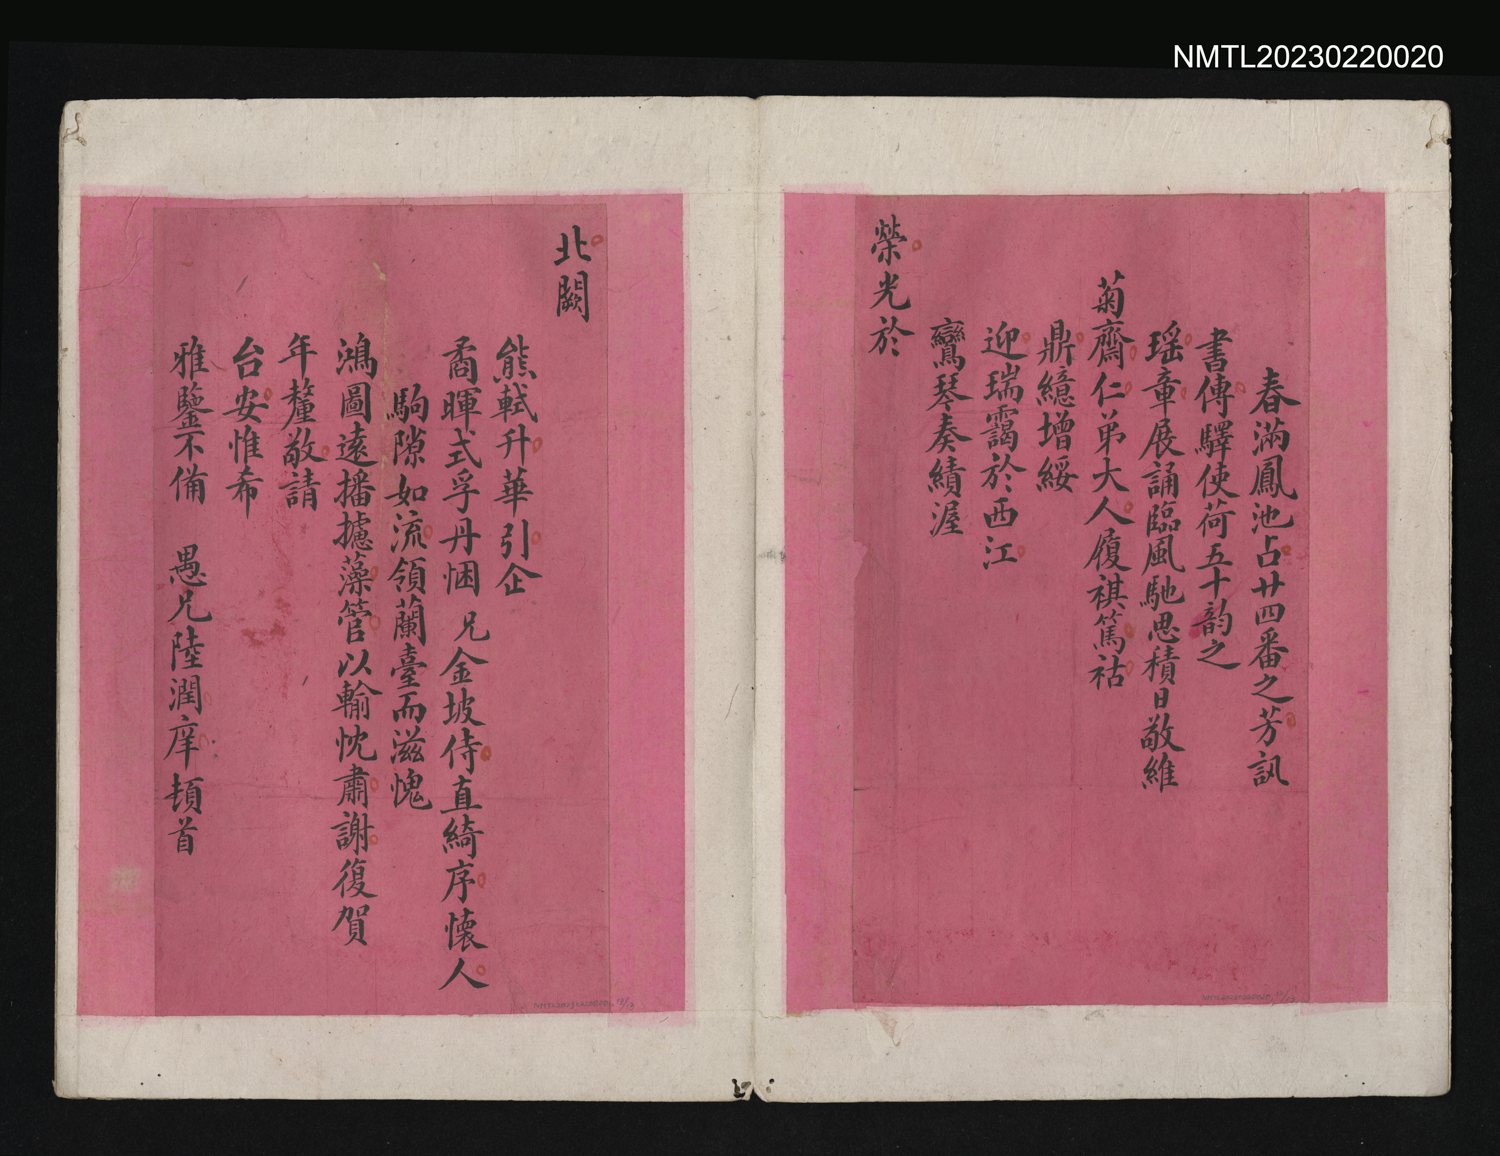 NMTL20230220020
春滿鳳池占廿四番之芳訊
書傳驛使荷五十韵之
瑤章展誦臨風馳思積日敬維
菊齋仁弟大人履祺篤祜
鼎繶增綏
迎瑞靄於西江
鸞琴奏績渥
榮光於
北闕
熊軾升華引企
矞暉式孚丹悃兄金坡侍直綺序懷人
駒隙如流領蘭臺而滋愧
鴻圖遠播攄藻管以輸忱肅謝復賀
年釐敬請
台安惟希
雅鑒不備　愚兄陸潤庠頓首